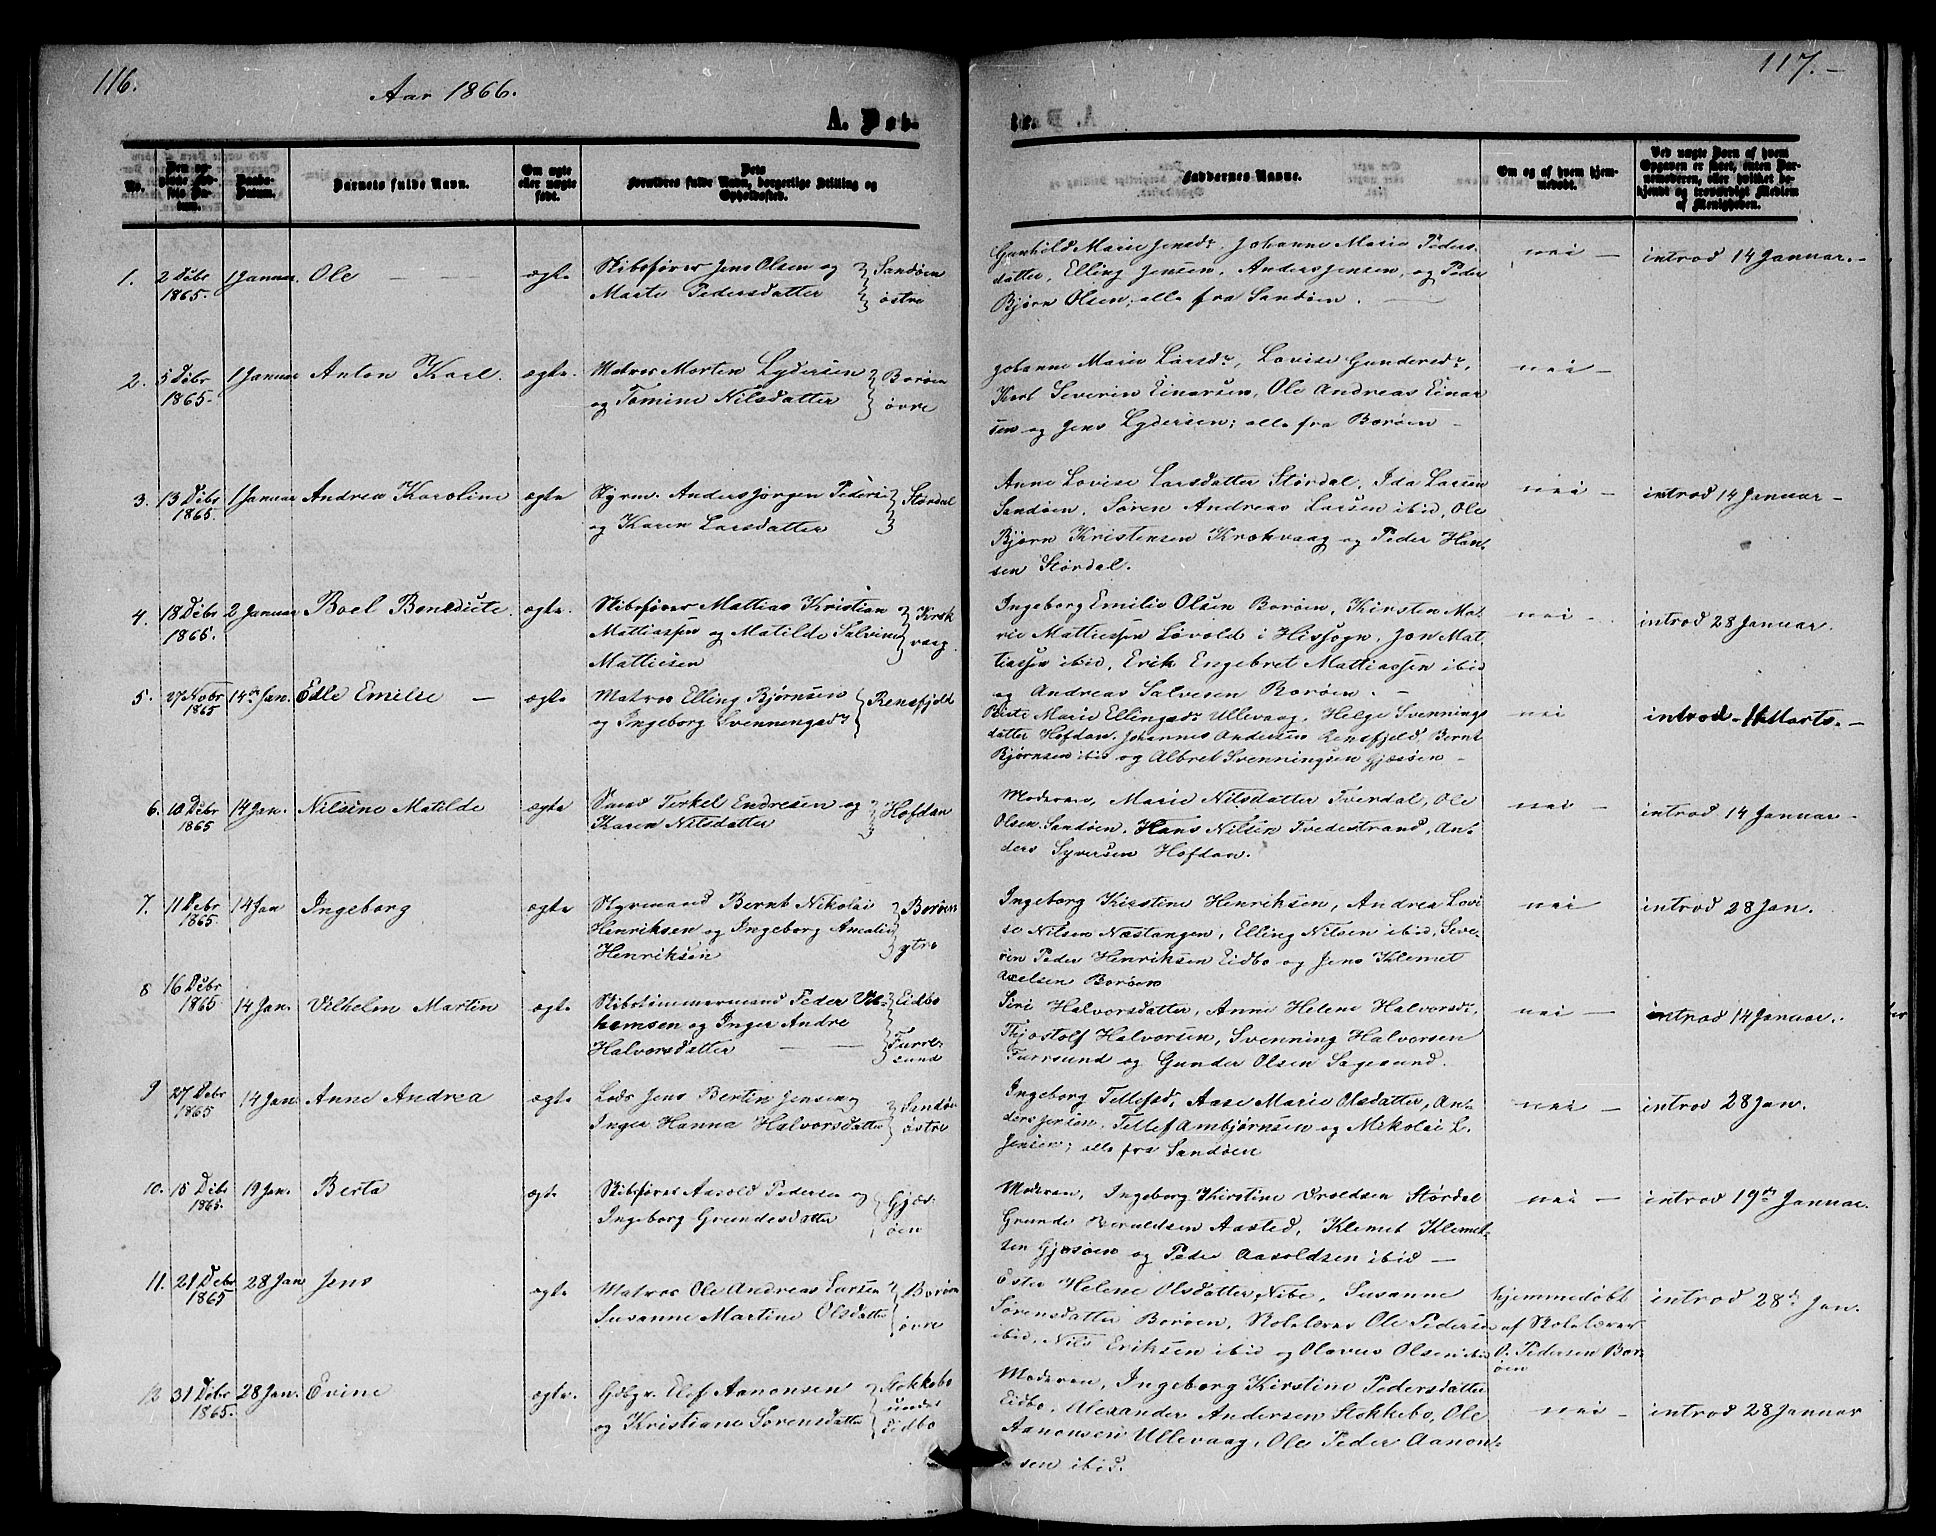 116.
Aar 1866.
A. Døb-
No.
Den opgivne Fødsels Datum.
Daabs-Datum.
Barnets fulde Navn.
Om ægte eller uægte født.
Dets Forældres fulde Navn, borgerlige Stilling og Opholdssted.
1. 2 Dčbr 1865. 1 Januar. Ole ægte
Skibsfører Jens Olsen og
Marte Pedersdatter
Sandøen
østre
2. 5 Dčbr 1865. 1 Januar Anton Karl. ægte.
Matros Morten Lydersen
og Tomine Nilsdatter
Borøen
øvre
3. 13 Dčbr 1865. 1 Januar Andrea Karoline ægte
Styrm. Anders Jørgen Peders:
og Karen Larsdatter
Størdal
4. 18 Dčbr 1865. 2 Januar Boel Benedicte. ægte.
Skibsfører Mattias Kristian
Mattiassen og Matilde Salvine
Mattiesen
Krok
vaag.
5. 27 Novbr 1865 14de Jan. Edle Emilie — ægte
Matros Elling Bjørnsen
og Ingeborg Svenningsdr
Rensfjeld
6. 10 Dčbr 1865 14 Jan. Nilsine Matilde ægte
Terkel Endresen og
Karen Nilsdatter
Hofdan
7. 11 Dčbr 1865. 14 Jan Ingeborg ægte
Styrmand Bernt Nikolai
Henriksen og Ingeborg Amalie
Henriksen
Borøen
ytre
8 16 Dčbr 1865 14 Jan. Vilhelm Martin ægte
Skibstømmermand Peder Vil-
hemsen og Inger Andre
Halvorsdatter — —
Eidbo
Furre-
sund
9 27 Dčbr 1865 14 Jan Anne Andrea ægte
Lods Jens Bertin Jensen og
Inger Hanna Halvorsdatter
Sandøen
østre
10. 15 Dčbr 1865. 19 Jan. Berta ægte
Skibsfører Aasold Pedersen og
Ingeborg Grundesdatter
Gjæs-
øen
11. 21 Dčbr 1865 28 Jan Jens ægte
Matros Ole Andreas Larsen
Susanne Martine Olsdatter
Borøen
øvre
12 31 Dčbr 1865. 28 Jan. Evine ægte.
Gdbgr. Elef Aanonsen
og Kristiane Sørensdatter
Stokkebo
under
Eidbo
117.-
te.
Faddernes Navne.
Om og af hvem hjemmedøbt.
Ved uægte Børn af hvem Opgaven er skeet, enten Barnemoderen, eller hvilket bekjendt og troværdigt Medlem af Menigheden.
Gunhild Marie Jensdr, Johanne Marie Peders-
datter, Elling Jensen, Anders Jensen, og Peder
Bjørn Olsen; alle fra Sandøen. —
nei — introd 14 Januar. -
Johanne Marie Larsdr, Lovise Gundersdr,
Karl Severin Einarsen, Ole Andreas Einar
sen og Jens Lydersen; alle fra Borøen —
nei -
Anne Lovise Larsdatter Størdal, Ida Larsen
Sandøen, Søren Andreas Larsen ibid, Ole
Bjørn Kristensen Krokvaag og Peder Han-
sen Størdal.
nei — introd 14 Januar -
Ingeborg Emilie Olsen Borøen, Kirsten Ma-
rie Mattiessen Løvold i Hissogn, Jon Mat
tiassen ibid, Erik Engebret Mattiassen ibid
og Andreas Salvesen Borøen. -
nei - introd 28 Januar.
Berte Marie Ellingsdr Ullevaag, Helge Svennings
datter Hofdan, Johannes Andersen Rensfjeld, Bernt
Bjørnsen ibid og Albret Svenningsen Gjæsøen -
nei introd Marts. -
Moderen, Marie Nilsdatter Tverdal, Ole
Olsen Sandøen, Hans Nilsen Tvedestrand, An-
ders Syversen Hofdan.
nei — introd 14 Januar -
Ingeborg Kirstine Henriksen, Andrea Lovi
se Nilsen Næstangen, Elling Nilsen ibid, Seve-
rin Peder Henriksen Eidbo og Jens Klemet
Axelsen Borøen
nei introd 28 Jan.
Siri Halvorsdatter, Anne Helene Halvorsdr,
Thjostolf Halvorsen, Svenning Halvorsen
Furrsund og Gunder Olsen Sagesund.
nei — introd 14 Januar.
Ingeborg Tellefsdr, Aase Marie Olsdatter, An-
ders Jensen, Tellef Ambjørnsen og Nikolai L.
Jensen; alle fra Sandøen
nei — introd 28 Jan.
Moderen, Ingeborg Kirstine Aroldsen Størdal
Grunde Haraldsen Aasted, Klemet Klemet-
sen Gjæsøen og Peder Aasoldsen ibid —
nei — introd 19de Januar.
Ester Helene Olsdatter Nibe, Susanne
Sørensdatter Borøen, Skolelærer Ole Pedersen
ibid, Nils Eriksen ibid og Olavus Olsen ibid
hjemmedøbt
af Skolelærer
O. Pedersen Bor-
øen
introd 28de Jan.
Moderen, Ingeborg Kirstine Pedersdatter
Eidbo, Alexander Andersen Stokkebo, Ole
Aanonsen Ullevaag, Ole Peder Aanon-
sen ibid.
nei — introd 28 Januar